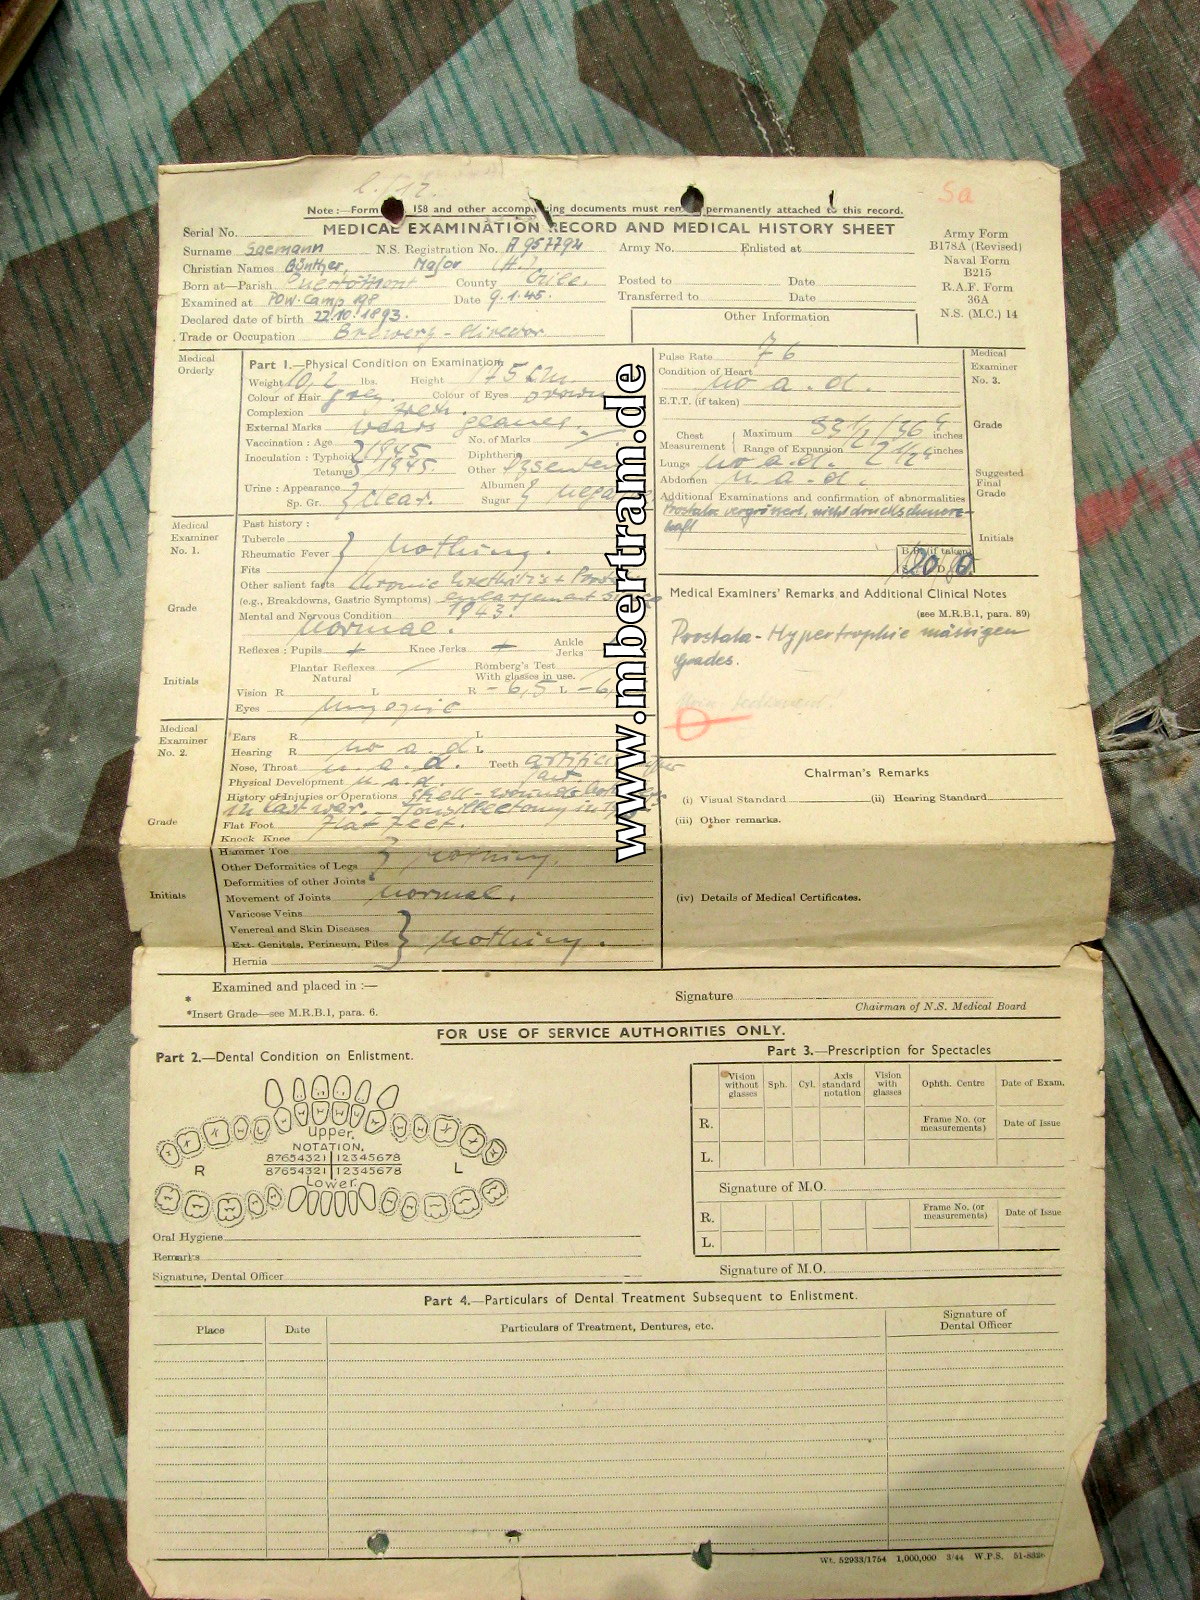 Sa
Note :—Form 158 and other accompanying documents must remain permanently attached to this record.
Serial No.
MEDICAL EXAMINATION RECORD AND MEDICAL HISTORY SHEET
Army Form
B178A (Revised)
Naval Form
B215
R.A.F. Form
36A
N.S. (M.C.) 14
Surname Saemann N.S. Registration No. A 957794 Army No. Enlisted at
Christian Names Günther, Major (H.)
Born at—Parish County Chile. Posted to Date
Examined at POW-Camp 198 Date 9.1.45. Transferred to Date
Declared date of birth 22.10.1893.
Trade or Occupation Brewery-Director
Other Information
Medical
Orderly
Part 1.—Physical Condition on Examination
Weight 10,2 lbs. Height 175 cm
Colour of Hair grey. Colour of Eyes brown
Complexion
External Marks wears glasses.
Vaccination : Age No. of Marks
Inoculation : Typhoid 1945 Diphtheria
Tetanus 1945. Other
Urine : Appearance Albumen
Sp. Gr. } clear. Sugar }
Pulse Rate 76
Condition of Heart no a. d.
E.T.T. (if taken)
Chest
Measurement { Maximum inches
Range of Expansion 2 1/2" inches
Lungs no a. d.
Abdomen n. a. d.
Additional Examinations and confirmation of abnormalities
Prostata vergrössert, nicht druckschmerz-
haft
B.P. (if taken)
Medical
Examiner
No. 3.
Grade
Suggested
Final
Grade
Initials
Medical
Examiner
No. 1.
Grade
Initials
Past history :
Tubercle
Rheumatic Fever } nothing.
Fits
Other salient facts chronic Urethritis +
(e.g., Breakdowns, Gastric Symptoms) enlargement since
1943.
Mental and Nervous Condition
normal.
Reflexes : Pupils + Knee Jerks + Ankle
Jerks
Plantar Reflexes
Natural Romberg's Test
With glasses in use.
Vision R L R - 6,5 L
Eyes myopic
Medical Examiners' Remarks and Additional Clinical Notes
(see M.R.B.1, para. 89)
Prostata-Hypertrophie mässigen
Grades.
Medical
Examiner
No. 2.
Grade
Initials
Ears R. L
Hearing R no a. d. L
Nose, Throat n. a. d. Teeth
Physical Development n. a. d.
History of Injuries or Operations shell-wounds
in last war. - Tonsillectomy in
Flat Foot Flat Feet.
Knock Knee
Hammer Toe
Other Deformities of Legs } nothing.
Deformities of other Joints
Movement of Joints normal.
Varicose Veins
Venereal and Skin Diseases
Ext. Genitals, Perineum, Piles } nothing.
Hernia
Chairman's Remarks
(i) Visual Standard (ii) Hearing Standard
(iii) Other remarks.
(iv) Details of Medical Certificates.
Examined and placed in :—
*
*Insert Grade—see M.R.B.1, para. 6.
Signature
Chairman of N.S. Medical Board
FOR USE OF SERVICE AUTHORITIES ONLY.
Part 2.—Dental Condition on Enlistment.
Upper.
NOTATION.
R 87654321 12345678 L
87654321 12345678
Lower.
Oral Hygiene
Remarks
Signature, Dental Officer
Part 3.—Prescription for Spectacles
Vision without glasses Sph. Cyl. Axis standard notation Vision with glasses Ophth. Centre Date of Exam.
R. Frame No. (or measurements) Date of Issue
L.
Signature of M.O.
R. Frame No. (or measurements) Date of Issue
L.
Signature of M.O.
Part 4.—Particulars of Dental Treatment Subsequent to Enlistment.
Place Date Particulars of Treatment, Dentures, etc. Signature of Dental Officer
Wt. 52933/1754 1,000,000 3/44 W.P.S.
www.mbertram.de